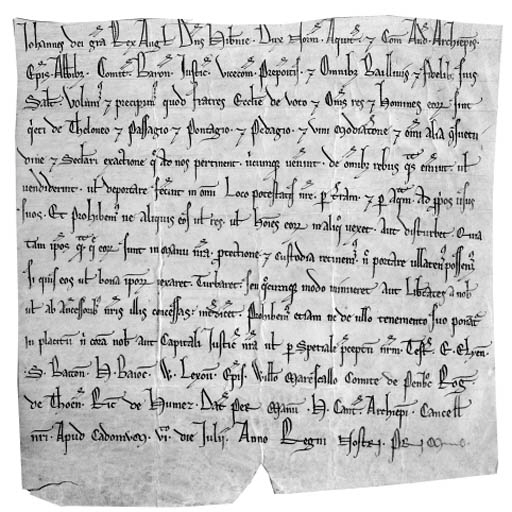 Iohannes dei gra Rex Angl. Dns Hibnie. Dux Norm. Aquit. ⁊ Com And. Archiepis.
Epis. Abbibz. Comit. Baron. Justic. vicecom. Prepositis. ⁊ Omnibz Baillivis ⁊ fidelibz suis
Salt. Volum ⁊ precipim quod fratres Ecclie de voto ⁊ Oms res ⁊ Homines eorz sint
qieti de Theloneo ⁊ Passagio ⁊ Pontagio. ⁊ Pedagio. ⁊ vini modiatione ⁊ omi alia qsuetu
dine ⁊ Seclari exactione q ad nos pertinent. de omibz rebus qs emint ul
vendiderint. ul deportare fecint in omi Loco potestatis nre. p tram. ⁊ p aqm. Ad ppos usus
suos. Et prohibem ne aliquis eos ul res. ul hoies eorz in aliq vexet. Aut disturbet. Quia
tam ipos q q eorz sunt in manu nra. ptectione. ⁊ custodia retinem. n portare possem.
Si quis eos ul bona iporz vexaret. Turbaret. seu modo minueret Aut Libtates a nob
ul ab Ancessoribz nris illis concessas. Prohibem etiam ne de ullo tenemento suo ponat
in placitu n cora nob aut Capitali Justic nra ul p Speciale pceptu nrm. Test. E. Elien.
S. Baton. H. Baioc. W. Lexou. Epis. Willo Marescallo Comite de Penbc. Rog
de Thoen. Ric de Humez. Dat Per Manu. H. Cant. Archiepi. Cancell
nri. Apud Cadomum. vi. die Julij. Anno Regni Nostri. Primo.